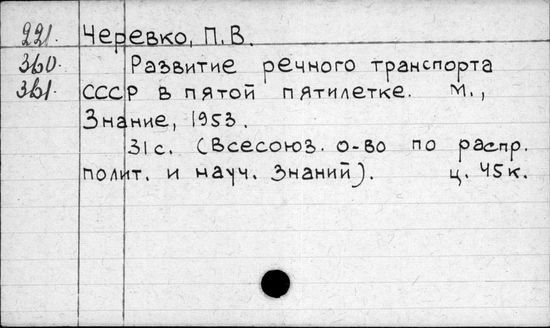 221. Черевко, П. В.
360. Развитие речного транспорта
361. СССР в пятой пятилетке. М.,
Знание, 1953.
31 с. (Всесоюз. о-во по распр.
полит. и науч. знаний). ц. 45 к.